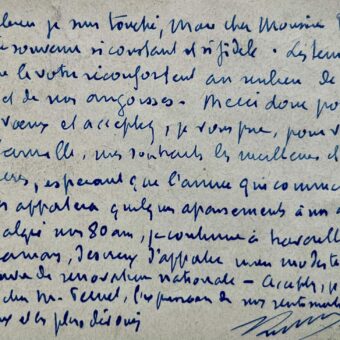 je suis touché, Mon cher Monsieur
souvenir si constant et si fidèle. Les
le votre réconfortent au milieu de
et de nos angoisses. Merci donc po
vœux et acceptez, je vous prie, pour v
famille, mes souhaits les meilleurs
espérant que l'année qui comm
apportera quelques apaisements à nos
algré mes 80 ans, je continue à travaill
d'apporter mon modeste
de rénovation nationale - Acceptez,
cher M. l'expression de mes sentiments
et les plus dévoués